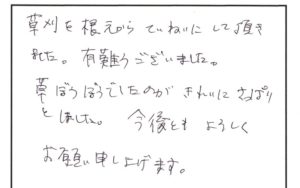 草刈を根元から ていねいに して頂き
ました。有難うございました。
草ぼうぼうでしたのが きれいに さっぱり
としました。 今後とも よろしく
お願い申し上げます。